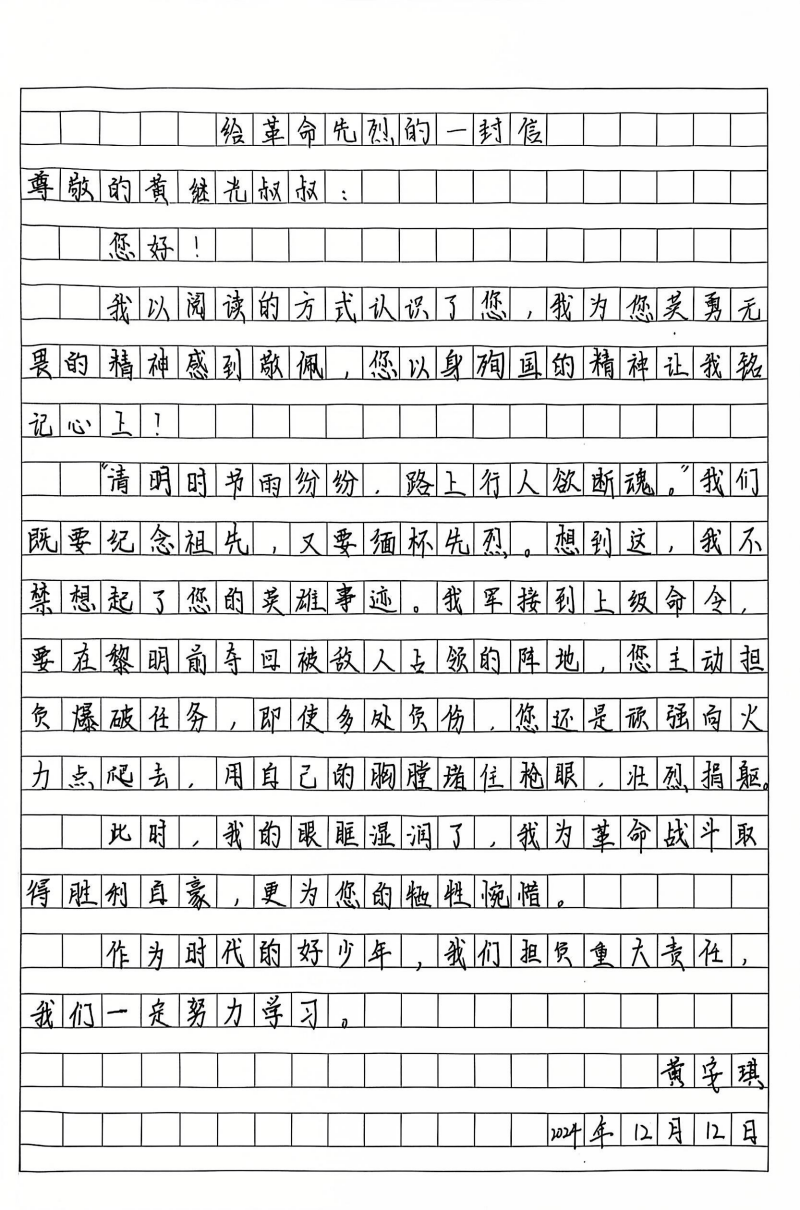 给革命先烈的一封信
尊敬的黄继光叔叔：
您好！
我以阅读的方式认识了您，我为您英勇无
畏的精神感到敬佩，您以身殉国的精神让我铭
记心上！
“清明时节雨纷纷，路上行人欲断魂。”我们
既要纪念祖先，又要缅怀先烈。想到这，我不
禁想起了您的英雄事迹。我军接到上级命令，
要在黎明前夺回被敌人占领的阵地，您主动担
负爆破任务，即使多处负伤，您还是顽强向火
力点爬去，用自己的胸膛堵住枪眼，壮烈捐躯。
此时，我的眼眶湿润了，我为革命战斗取
得胜利自豪，更为您的牺牲惋惜。
作为时代的好少年，我们担负重大责任，
我们一定努力学习。
黄安琪
2024年12月12日